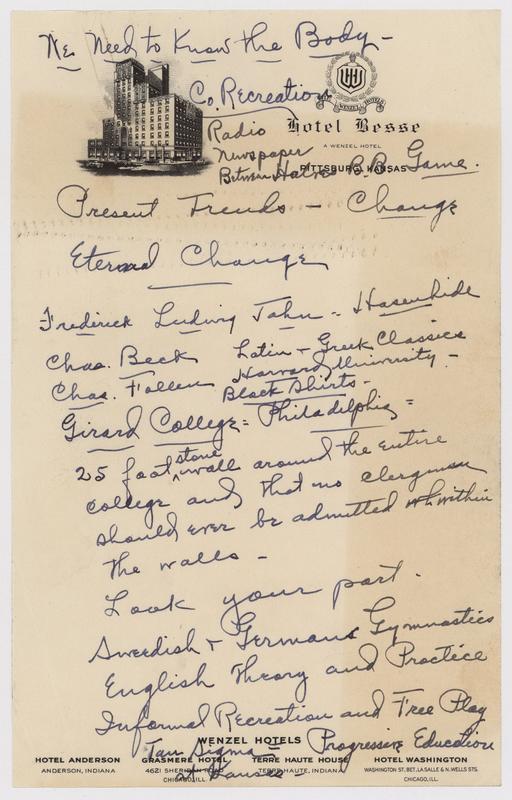 We Need to Know the Body -
Co. Recreation
WENZEL HOTELS
Radio
Hotel Besse
A WENZEL HOTEL
Newspaper
PITTSBURG, KANSAS
Between Halves B.B. Game.
Present Trends - Change
Eternal Change
Frederick Ludwig Jahn = Hasenheide
Chas. Beck Latin + Greek Classics
Chas. Follen Harvard University -
Black Shirts -
Girard College = Philadelphia =
25 foot stone wall around the entire
college and that no clergman
should ever be admitted within
the walls -
Look your part.
Swedish + Germans Gymnastics
English Theory and Practice
Informal Recreation and Free Play
WENZEL HOTELS
Tau Sigma = Progressive Education
at Kansas -
HOTEL ANDERSON
ANDERSON, INDIANA
GRASMERE HOTEL
4621 SHERIDAN ROAD
CHICAGO, ILL.
TERRE HAUTE HOUSE
TERRE HAUTE, INDIANA
HOTEL WASHINGTON
WASHINGTON ST. BET. LA SALLE & N. WELLS STS.
CHICAGO, ILL.